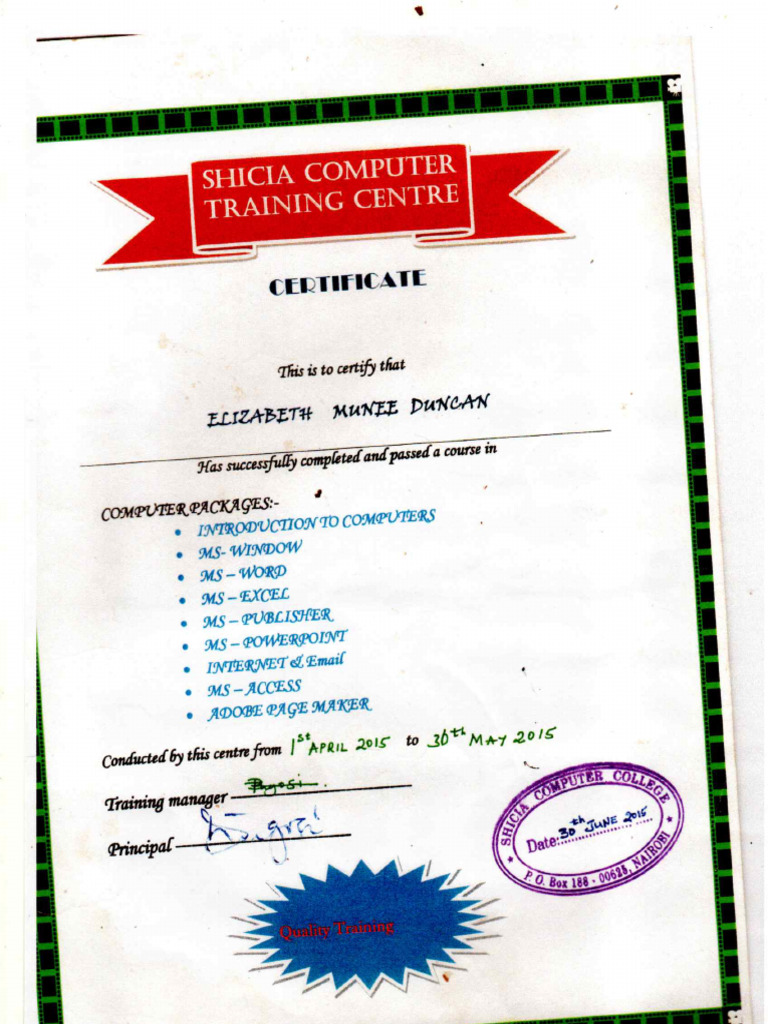 SHICIA COMPUTER
TRAINING CENTRE
CERTIFICATE
This is to certify that
ELIZABETH MUNEE DUNCAN
Has successfully completed and passed a course in
COMPUTER PACKAGES:-
• INTRODUCTION TO COMPUTERS
• MS- WINDOW
• MS – WORD
• MS – EXCEL
• MS – PUBLISHER
• MS – POWERPOINT
• INTERNET & Email
• MS – ACCESS
• ADOBE PAGE MAKER
Conducted by this centre from 1st APRIL 2015 to 30th MAY 2015
Training manager
Principal
SHICIA COMPUTER COLLEGE
Date: 30th JUNE 2015
P.O. Box 188 - 00625, NAIROBI
Quality Training